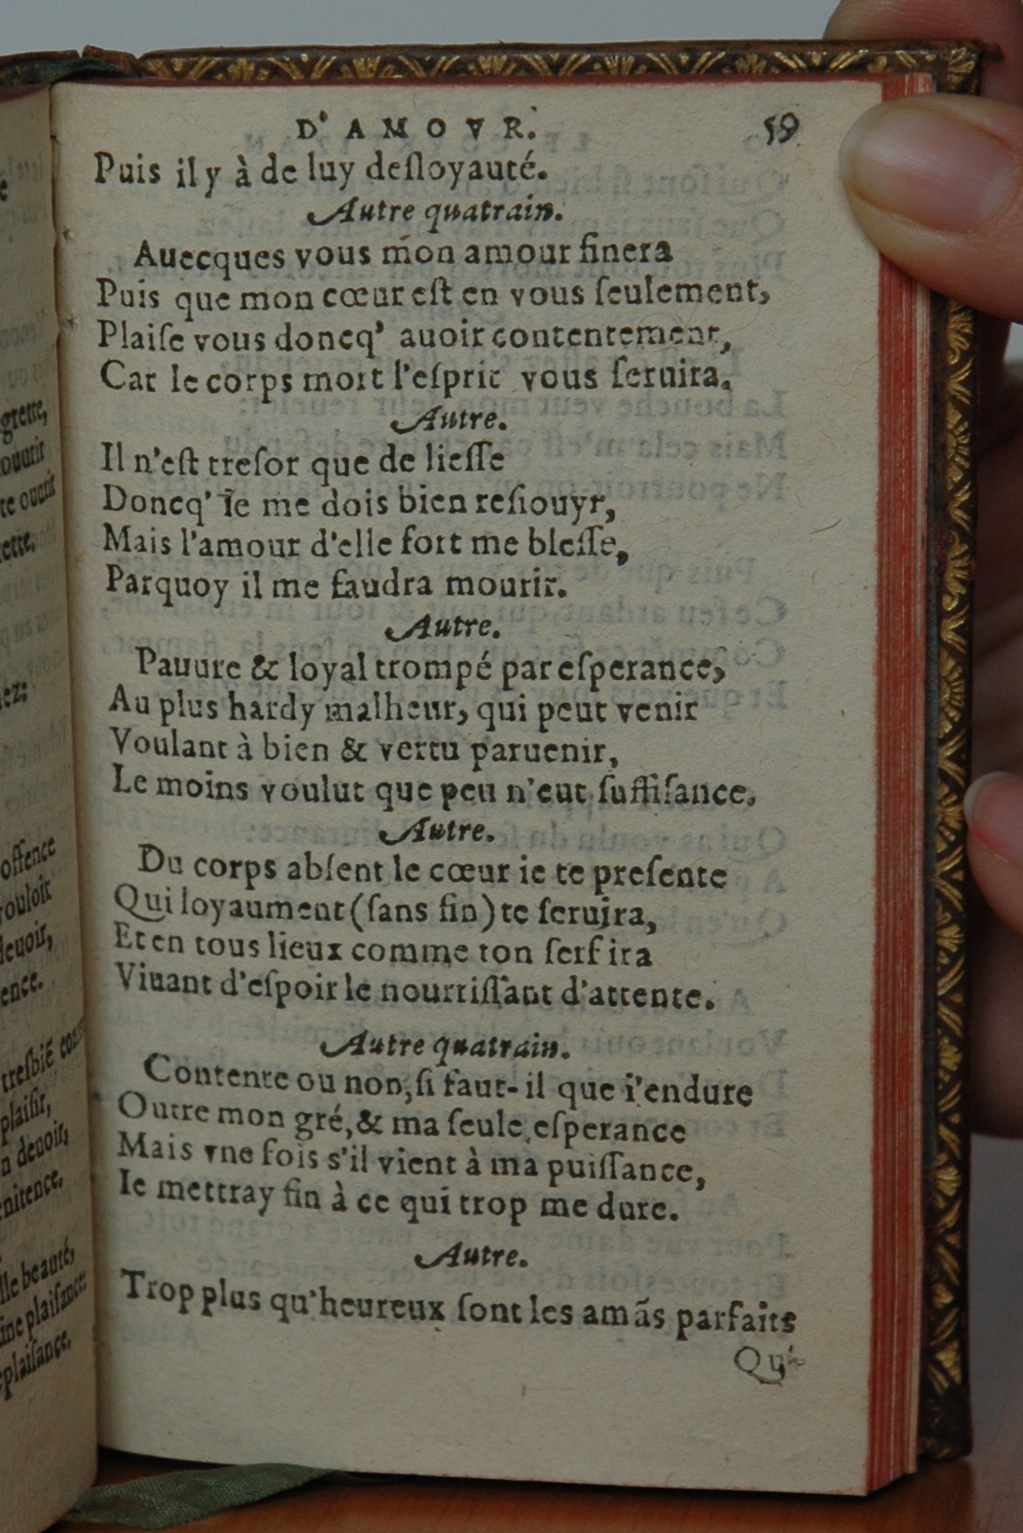 D' A M O V R.
59
Puis il y à de luy desloyauté.
Autre quatrain.
Auecques vous mon amour finera
Puis que mon cœur est en vous seulement,
Plaise vous doncq' auoir contentement,
Car le corps mort l'esprit vous seruira.
Autre.
Il n'est tresor que de liesse
Doncq' Ie me dois bien resiouyr,
Mais l'amour d'elle fort me blesse,
Parquoy il me faudra mourir.
Autre.
Pauure & loyal trompé par esperance,
Au plus hardy malheur, qui peut venir
Voulant à bien & vertu paruenir,
Le moins voulut que peu n'eut suffisance.
Autre.
Du corps absent le cœur ie te presente
Qui loyaument (sans fin) te seruira,
Et en tous lieux comme ton serf ira
Viuant d'espoir le nourrissant d'attente.
Autre quatrain.
Contente ou non, si faut-il que i'endure
Outre mon gré, & ma seule esperance
Mais vne fois s'il vient à ma puissance,
Ie mettray fin à ce qui trop me dure.
Autre.
Trop plus qu'heureux sont les amãs parfaits
Qui
grette,
ouurir
te
ette.
ez:
offence
ouloir
euoir,
ence.
tresbiẽ
plaisir,
n deuoir,
nitence.
lle beauté,
ine plaisance:
plaisance.